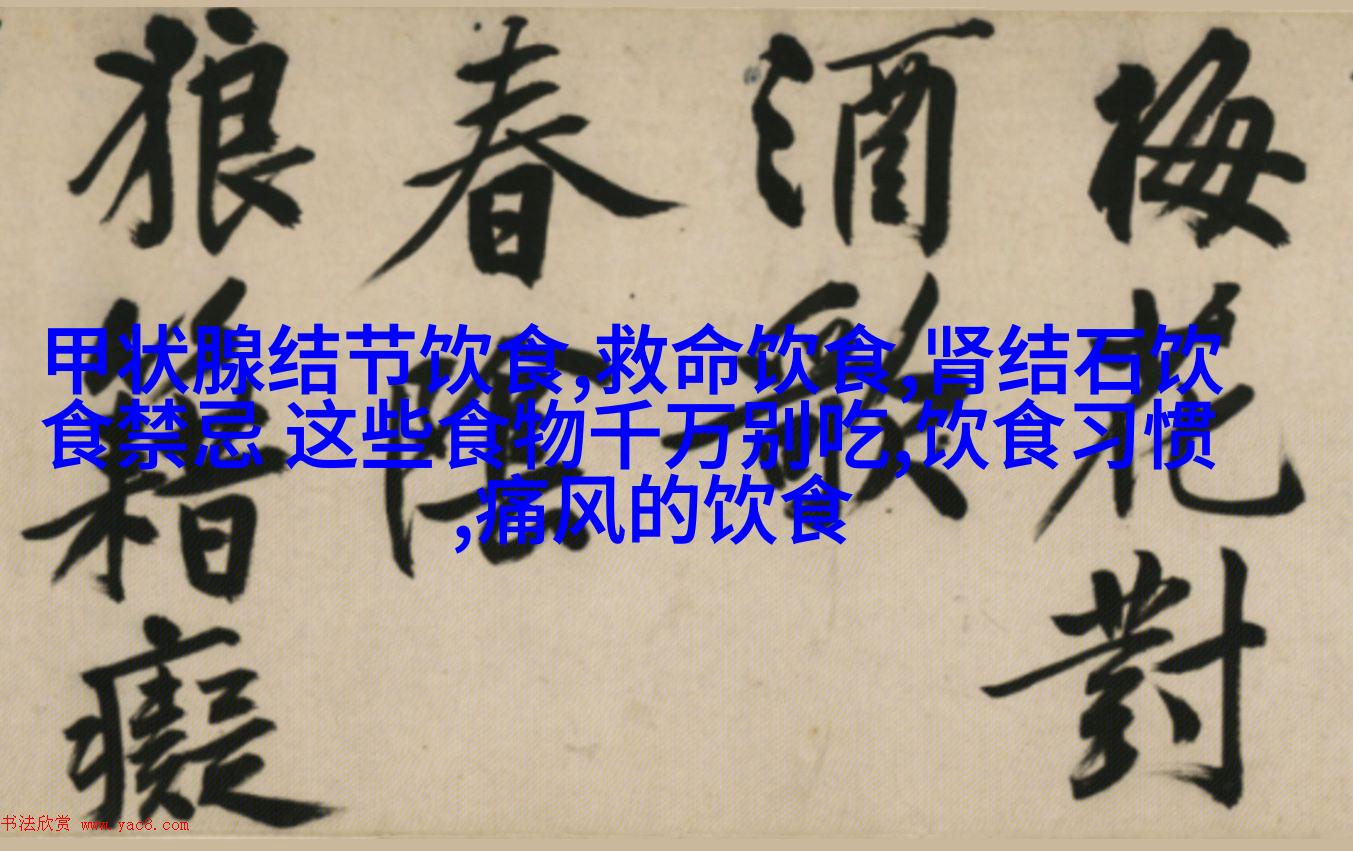 梅花對
酒歌
春
狼籍癡
甲状腺结节饮食,救命饮食,肾结石饮
食禁忌 这些食物千万别吃,饮食习惯
,痛风的饮食
书法欣赏 www.yac8.com